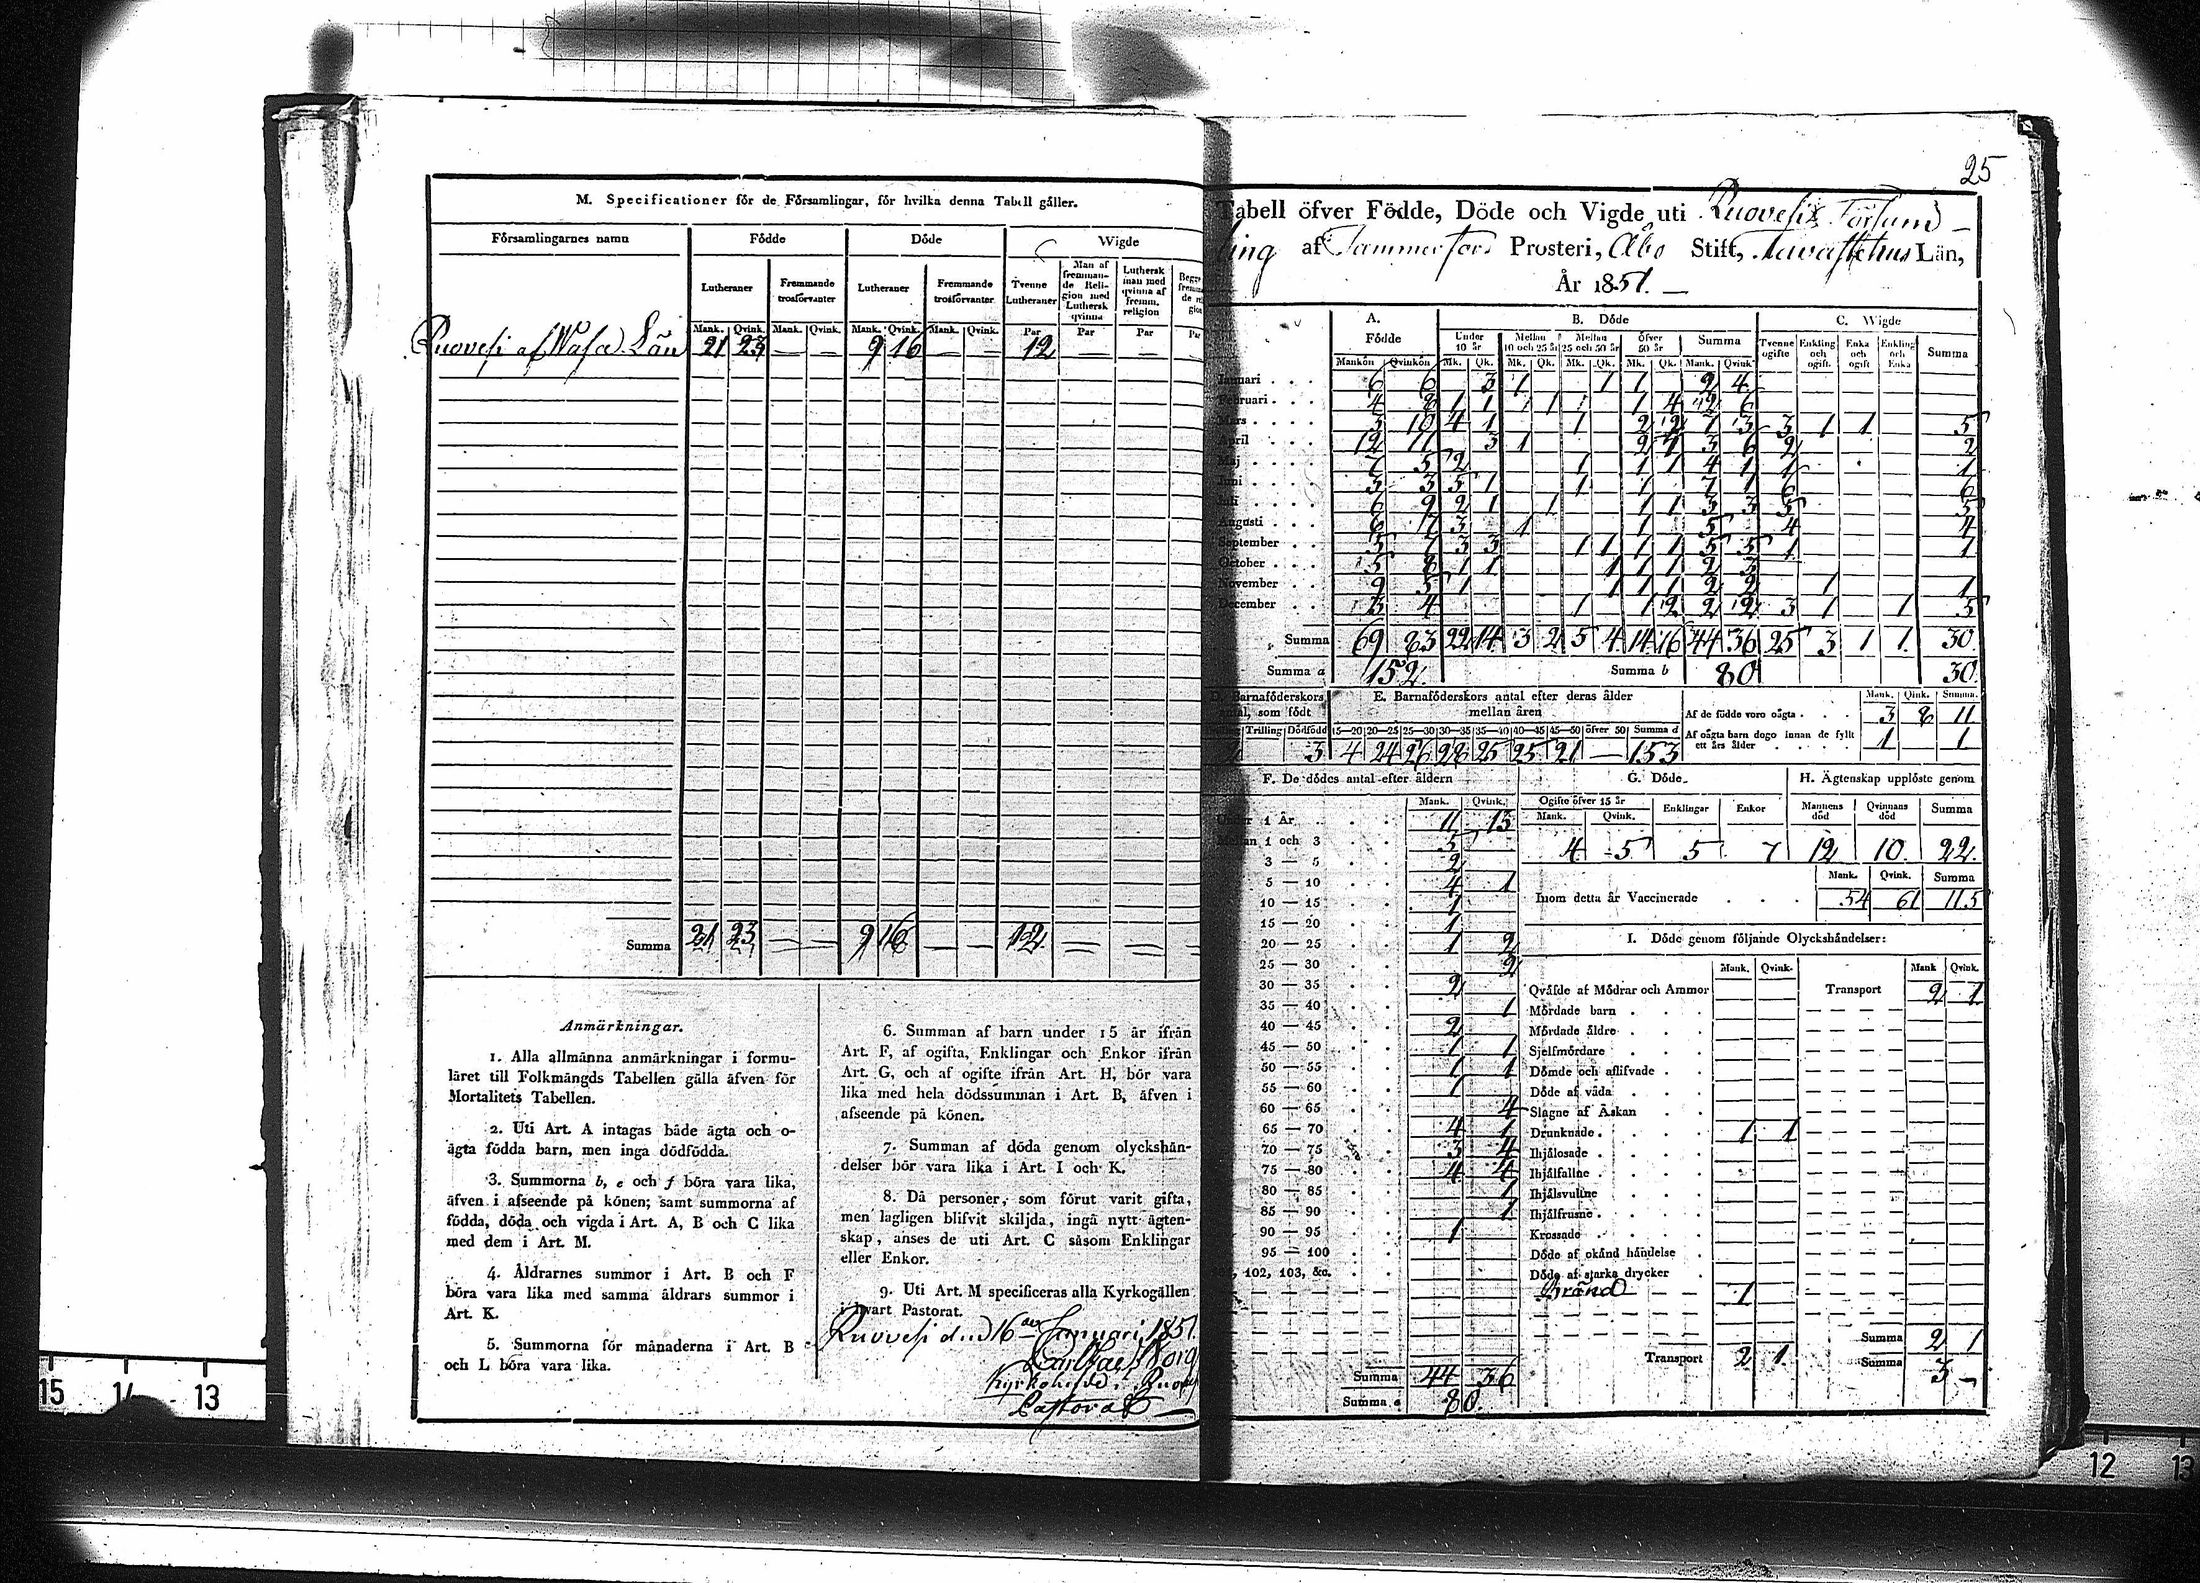 M. Specificationer för de Församlingar, för hvilka denna Tabell gäller.
Församlingarnes namn Födde Döde Wigde
Lutheraner Fremmande trosförvanter Lutheraner Fremmande trosförvanter Tvenne Lutheraner Man af fremmande Religion med Luthersk qvinna Luthersk man med qvinna af fremm. religion
Mank. Qvink. Mank. Qvink. Mank. Qvink. Mank. Qvink. Par Par Par Par
Ruovesi af Wasa Län 21 23 — — 9 16 — — 12 — — —
Summa 21 23 — — 9 16 — — 12 — — —
Anmärkningar.
1. Alla allmänna anmärkningar i formu-
läret till Folkmängds Tabellen gälla äfven för
Mortalitets Tabellen.
2. Uti Art. A intagas både ägta och o-
ägta födda barn, men inga dödfödda.
3. Summorna b, e och f böra vara lika,
äfven i afseende på könen; samt summorna af
födda, döda och vigda i Art. A, B och C lika
med dem i Art. M.
4. Åldrarnes summor i Art. B och F
böra vara lika med samma åldrars summor i
Art. K.
5. Summorna för månaderna i Art. B
och L böra vara lika.
6. Summan af barn under 15 år ifrån
Art. F, af ogifta, Enklingar och Enkor ifrån
Art. G, och af ogifte ifrån Art. H, bör vara
lika med hela dödssumman i Art. B, äfven i
afseende på könen.
7. Summan af döda genom olyckshän-
delser bör vara lika i Art. I och K.
8. Då personer, som förut varit gifta,
men lagligen blifvit skiljda, ingå nytt ägten-
skap, anses de uti Art. C såsom Enklingar
eller Enkor.
9. Uti Art. M specificeras alla Kyrkogällen
i hvart Pastorat.
Ruovesi d. 16 Januari 185
Kyrkoherde i
Pastorat —
25
Tabell öfver Födde, Döde och Vigde uti Ruovesi Försam-
ling af Tammerfors Prosteri, Åbo Stift, Tavastehus Län,
År 1851. —
A. B. Döde C. Wigde
Födde Under 10 år Mellan 10 och 25 år Mellan 25 och 50 år Öfver 50 år Summa Tvenne ogifte Enkling och ogift. Enka och ogift Enkling och Enka Summa
Mankön Qvinkön Mk. Qk. Mk. Qk. Mk. Qk. Mk. Qk. Mank. Qvink.
Januari 6 6 3 1 1 1 2 4
Februari 4 8 1 1 1 1 4 2 6
Mars 3 10 4 1 1 2 2 7 3 3 1 1 5
April 12 11 3 1 2 3 6 2 2
Maj 7 5 2 1 1 1 4 1 1 1
Juni 3 5 1 1 1 7 1 6 6
Juli 6 9 2 1 1 1 1 3 3 5 5
Augusti 6 3 1 1 5 4 4
September 5 7 3 3 1 1 1 1 5 5 1 1
October 5 8 1 1 1 1 1 2 3
November 9 5 1 1 1 1 2 2 1 1
December 3 4 1 1 2 2 2 3 1 1 5
Summa 69 83 22 14 3 2 5 4 14 16 44 36 25 3 1 1 30
Summa a 152 Summa b 80 30
D. Barnaföderskors E. Barnaföderskors antal efter deras ålder
antal, som födt mellan åren
Trilling Dödfödd 15—20 20—25 25—30 30—35 35—40 40—45 45—50 öfver 50 Summa d
2 3 4 24 26 28 25 25 21 — 153
Mank. Qink. Summa.
Af de födde voro oägta 3 8 11
Af oägta barn dogo innan de fyllt ett års ålder 1 1
F. De dödes antal efter åldern
Mank. Qvink.
Under 1 År 11 13
Mellan 1 och 3 5
3 — 5 2
5 — 10 4 1
10 — 15 1
15 — 20 1
20 — 25 1 2
25 — 30 2
30 — 35 2
35 — 40 1
40 — 45 2
45 — 50 1 1
50 — 55 1 1
55 — 60 1
60 — 65 4
65 — 70 4 1
70 — 75 3 4
75 — 80 4 4
80 — 85 1
85 — 90 1
90 — 95 1
95 — 100
102, 103, &c.
Summa 44 36
Summa e 80
G. Döde H. Ägtenskap upplöste genom
Ogifte öfver 15 år Enklingar Enkor Mannens död Qvinnans död Summa
Mank. Qvink.
4 5 5 7 12 10 22
Mank. Qvink. Summa
Inom detta år Vaccinerade 54 61 115
I. Döde genom följande Olyckshändelser:
Mank. Qvink. Mank Qvink.
Qväfde af Mödrar och Ammor Transport 2 1
Mördade barn
Mördade äldre
Sjelfmördare
Dömde och aflifvade
Döde af våda
Slagne af Åskan
Drunknade 1 1
Ihjälosade
Ihjälfallne
Ihjälsvultne
Ihjälfrusne
Krossade
Döde af okänd händelse
Döde af starka drycker
Bränd 1
Summa 2 1
Transport 2 1 Summa 3 —
15 14 13
12 13